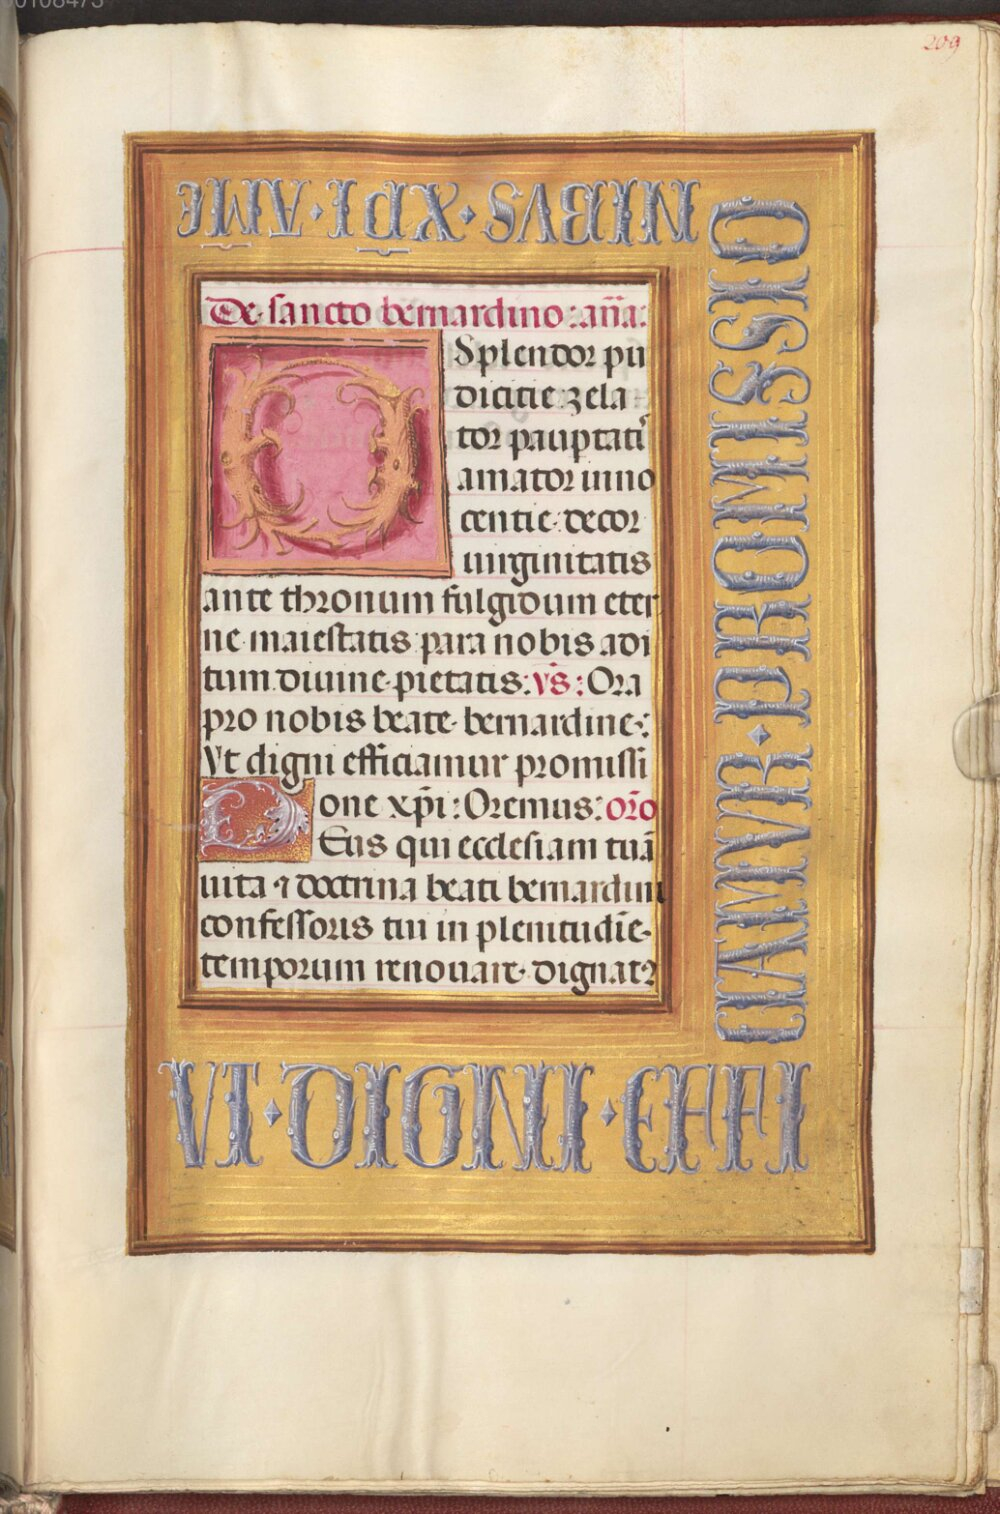 00108473
209
De sancto bernardino : an̄a:
O Splendor pu
dicitie zela
tor paup̱tatꝭ
amator inno
centie decor
uirginitatis
ante thronum fulgidum eter
ne maiestatis para nobis adi
tum diuine pietatis: vs̄ : Ora
pro nobis beate bernardine:
Vt digni efficiamur promissi
one xp̄i : Oremus: or̄o
DEus qui ecclesiam tuā
uita ⁊ doctrina beati bernardini
confessoris tui in plenitudīe
temporum renouare dignatꝰ
VT · DIGNI · EFFI
CIAMVR · PROMISSIO
NIBVS · XPI · AME